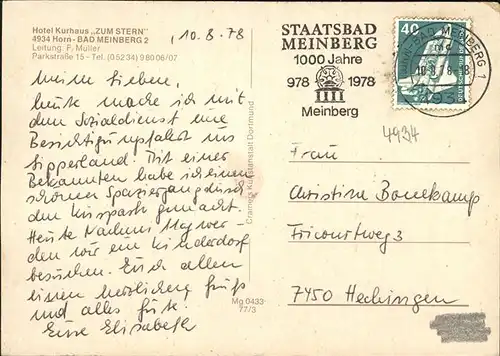 Hotel Kurhaus „ZUM STERN"
4934 Horn - BAD MEINBERG 2
Leitung: F. Müller
Parkstraße 15 - Tel. (05234) 98006/07
10.8.78
Meine Lieben,
heute mache ich mit
dem Sozialdienst eine
Besichtigungsfahrt ins
Lipperland. Mit einer
Bekannten habe ich einen
schönen Spaziergang durch
den Kurpark gemacht.
Heute Nachmittag wer-
den wir ein Kinderdorf
besuchen. Euch allen
einen herzlichen Gruß
und alles Gute.
Eure Elisabeth
Cramers Kunstanstalt Dortmund
Mg 0433
77/3
STAATSBAD
MEINBERG
1000 Jahre
978 1978
Meinberg
40
BAD MEINBERG 1
10.8.78-18
493
4934
Frau
Christine Bonekamp
Fricourtweg 3
7450 Hechingen